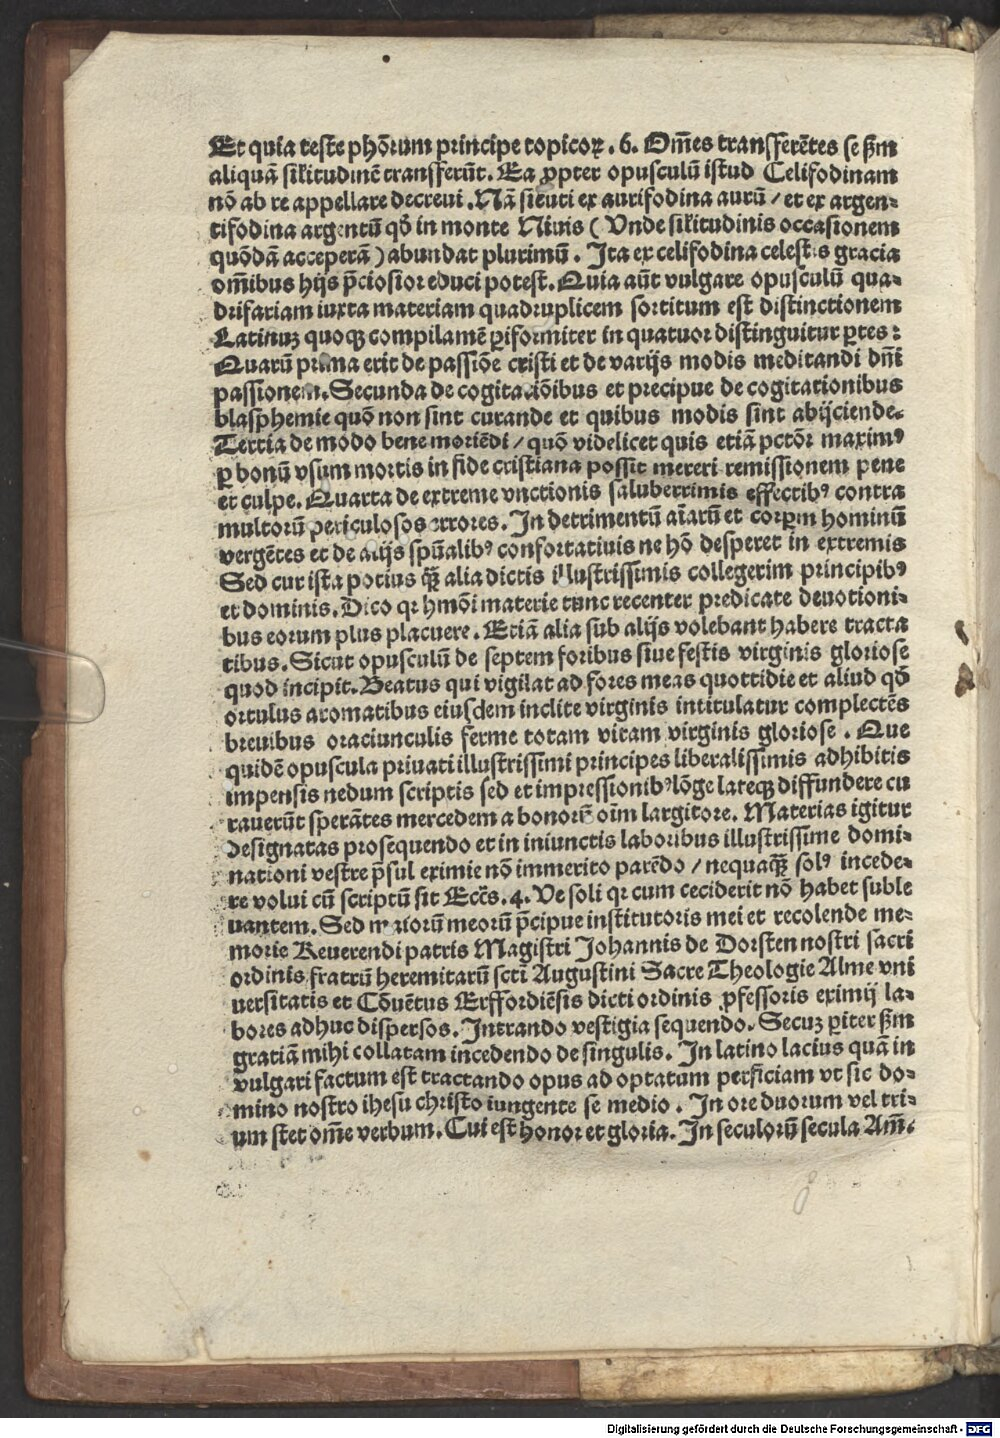 Et quia teste phōrum principe topicoꝝ . 6. Om̄es transferētes se ẜm
aliquā sil̄itudinē transferūt. Ea ꝓpter opusculū istud Celifodinam
nō ab re appellare decreui . Nā sicuti ex aurifodina aurū / et ex argen-
tifodina argentū qđ in monte Niuis ( Vnde sil̄itudinis occasionem
quōdā acceperā ) abundat plurimū . Ita ex celifodina celestis gracia
om̄ibus hijs p̄ciosior educi potest. Quia aūt vulgare opusculū qua-
drifariam iuxta materiam quadruplicem sortitum est distinctionem
Latinuꝫ quoqꝫ compilamē ꝑiformiter in quatuor distinguitur ꝑtes :
Quarū prima erit de passiōe cristi et de varijs modis meditandi dn̄i
passionem. Secunda de cogitaciōibus et precipue de cogitationibus
blasphemie quō non sint curande et quibus modis sint abijciende.
Tertia de modo bene moriēdi / quō videlicet quis etiā pctōr maximꝰ
ꝑ bonū vsum mortis in fide cristiana possit mereri remissionem pene
et culpe. Quarta de extreme vnctionis saluberrimis effectibꝰ contra
multorū periculosos errores. In detrimentū aīarū et corꝑm hominū
vergētes et de alijs spūalibꝰ confortatiuis ne hō desperet in extremis
Sed cur ista potius qꝫ̄ alia dictis illustrissimis collegerim principibꝰ
et dominis. Dico qꝛ hmōi materie tunc recenter predicate deuotioni-
bus eorum plus placuere. Etiā alia sub alijs volebant habere tracta
tibus. Sicut opusculū de septem foribus siue festis virginis gloriose
quod incipit. Beatus qui vigilat ad fores meas quottidie et aliud qđ
ortulus aromatibus eiusdem inclite virginis intitulatur complectēs
breuibus oraciunculis ferme totam vitam virginis gloriose . Que
quidē opuscula priuati illustrissimi principes liberalissimis adhibitis
impensis nedum scriptis sed et impressionibꝰ lōge lateqꝫ diffundere cu
rauerūt sperātes mercedem a bonorū oīm largitore. Materias igitur
designatas prosequendo et in iniunctis laboribus illustrissime domi-
nationi vestre p̄sul eximie nō immerito parēdo / nequaqꝫ̄ solꝰ incede-
re volui cū scriptū sit Ecc̄s. 4. Ve soli qꝛ cum ceciderit nō habet suble
uantem. Sed maiorū meorū p̄cipue institutoris mei et recolende me-
morie Reuerendi patris Magistri Johannis de Dorsten nostri sacri
ordinis fratrū heremitarū sctī Augustini Sacre Theologie Alme vni
uersitatis et Cōuētus Erffordiēsis dicti ordinis ꝓfessoris eximij la-
bores adhuc dispersos. Intrando vestigia sequendo. Secuꝫ ꝑiter ẜm
gratiā mihi collatam incedendo de singulis. In latino lacius quā in
vulgari factum est tractando opus ad optatum perficiam vt sic do-
mino nostro ihesu christo iungente se medio . In ore duorum vel tri-
um stet om̄e verbum. Cui est honor et gloria. In seculorū secula Am̄.
Digitalisierung gefördert durch die Deutsche Forschungsgemeinschaft - DFG